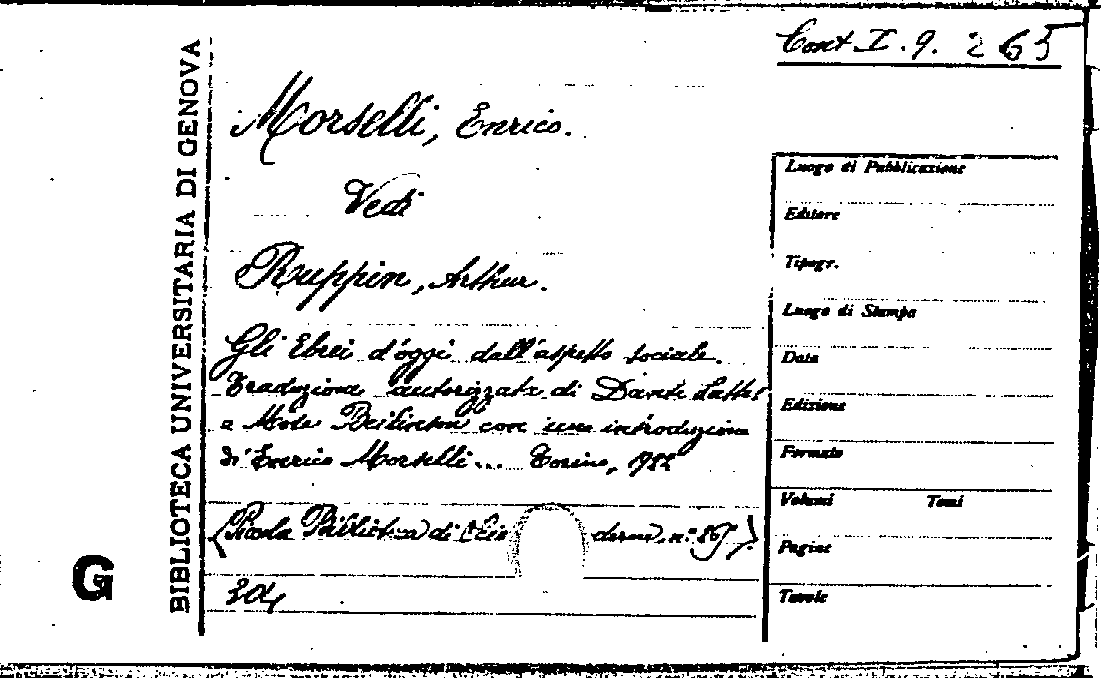 Cont. I. 9. 265
Morselli, Enrico.
Vedi
Ruppin, Arthur.
Gli Ebrei d'oggi dall'aspetto sociale.
Traduzione autorizzata di Dante Lattes
e Mosè Beilinson con una introduzione
di Enrico Morselli... Torino, 1922
(Piccola Biblioteca di derne, n.°
304
BIBLIOTECA UNIVERSITARIA DI GENOVA
G
Luogo di Pubblicazione
Editore
Tipogr.
Luogo di Stampa
Data
Edizione
Formato
Volumi Tomi
Pagine
Tavole